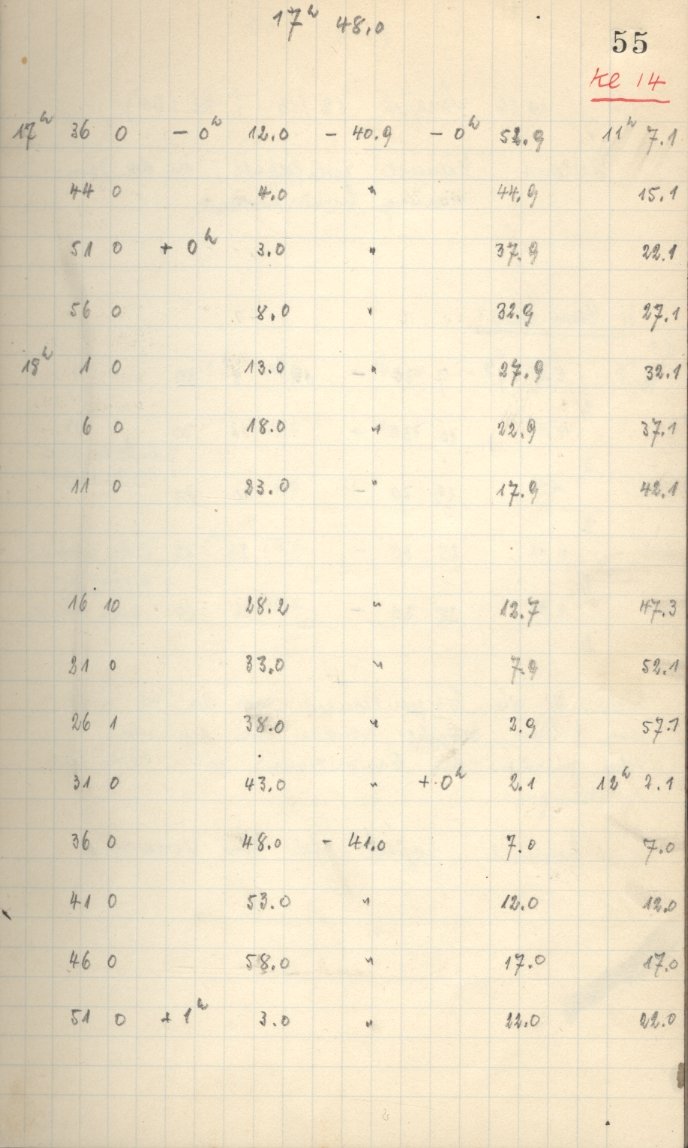 17ʰ 48.0
55
Ke 14
17ʰ 36 0 - 0ʰ 12.0 - 40.9 - 0ʰ 52.9 11ʰ 7.1
44 0 4.0 " 44.9 15.1
51 0 + 0ʰ 3.0 " 37.9 22.1
56 0 8.0 " 32.9 27.1
18ʰ 1 0 13.0 " 27.9 32.1
6 0 18.0 " 22.9 37.1
11 0 23.0 " 17.9 42.1
16 10 28.2 " 12.7 47.3
21 0 33.0 " 7.9 52.1
26 1 38.0 " 2.9 57.1
31 0 43.0 " + 0ʰ 2.1 12ʰ 2.1
36 0 48.0 - 41.0 7.0 7.0
41 0 53.0 " 12.0 12.0
46 0 58.0 " 17.0 17.0
51 0 + 1ʰ 3.0 " 22.0 22.0